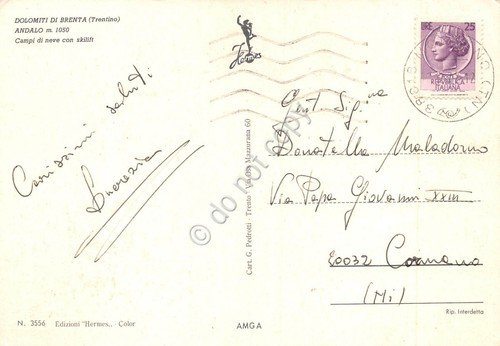 DOLOMITI DI BRENTA (Trentino)
ANDALO m. 1050
Campi di neve con skilift
Hermes
25
REPUBBLICA
ITALIANA
Carissimi saluti
Lucrezia
Gent. Sig.na
Donatella Maladorno
Via Papa Giovanni XXIII
20032 Cormano
(Mi)
Cart. G. Pedrotti - Trento - Via dei Mazzurana 60
do not copy
N. 3556 Edizioni "Hermes,, - Color
AMGA
Rip. Interdetta